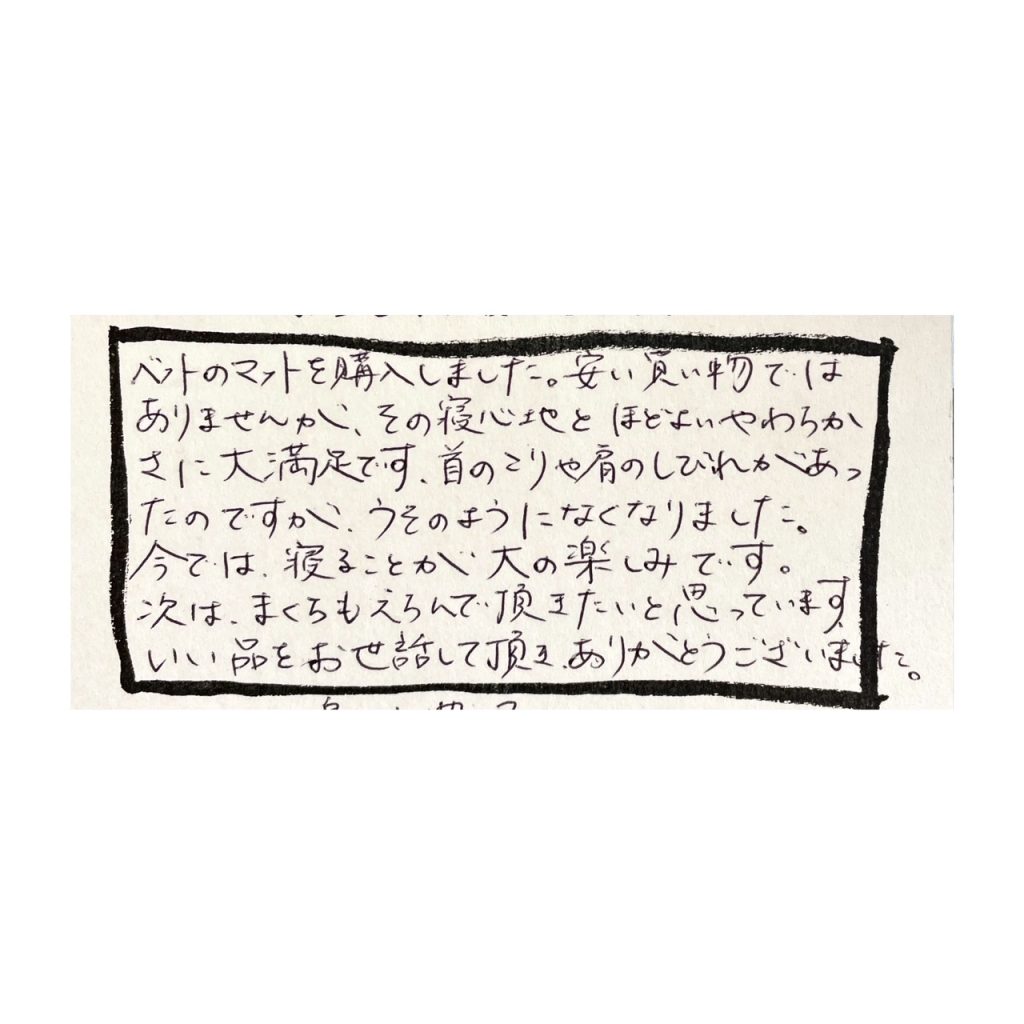 ベットのマットを購入しました。安い買い物では
ありませんが、その寝心地とほどよいやわらか
さに大満足です、首のこりや肩のしびれがあっ
たのですが、うそのようになくなりました。
今では、寝ることが大の楽しみです。
次は、まくらもえらんで頂きたいと思っています、
いい品をお世話して頂き、ありがとうございました。